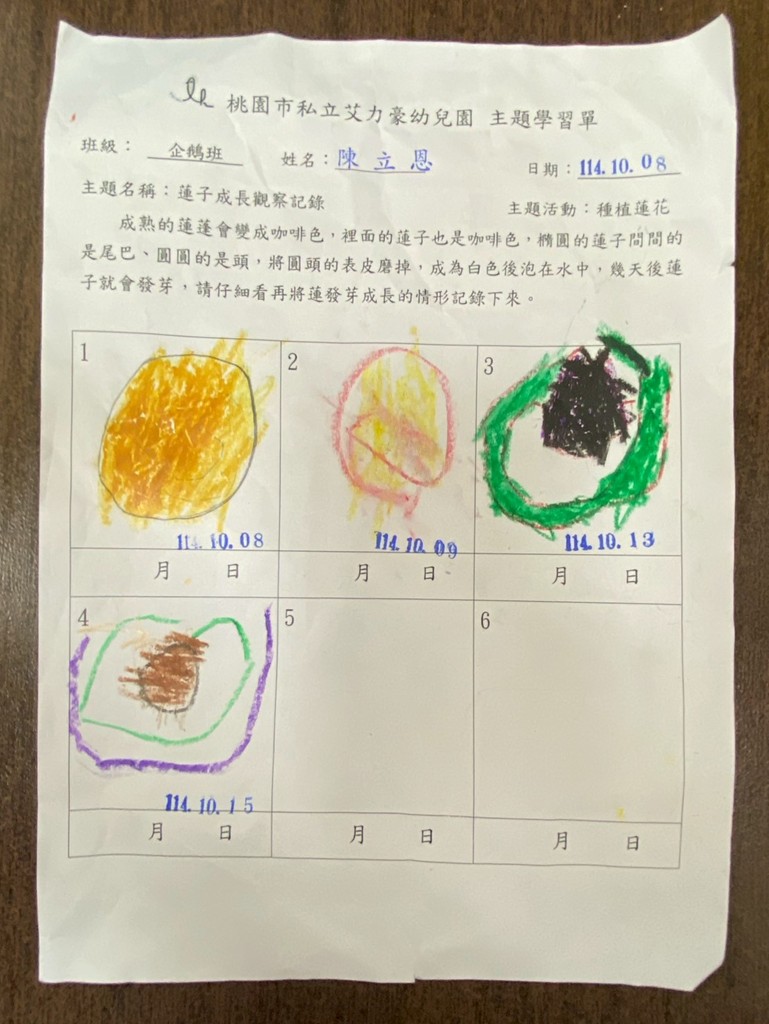 桃園市私立艾力豪幼兒園 主題學習單
班級： 企鵝班 姓名： 陳立恩 日期： 114.10.08
主題名稱：蓮子成長觀察記錄 主題活動：種植蓮花
成熟的蓮蓬會變成咖啡色，裡面的蓮子也是咖啡色，橢圓的蓮子間間的
是尾巴、圓圓的是頭，將圓頭的表皮磨掉，成為白色後泡在水中，幾天後蓮
子就會發芽，請仔細看再將蓮發芽成長的情形記錄下來。
1 2 3
114.10.08 114.10.09 114.10.13
月 日 月 日 月 日
4 5 6
114.10.15
月 日 月 日 月 日